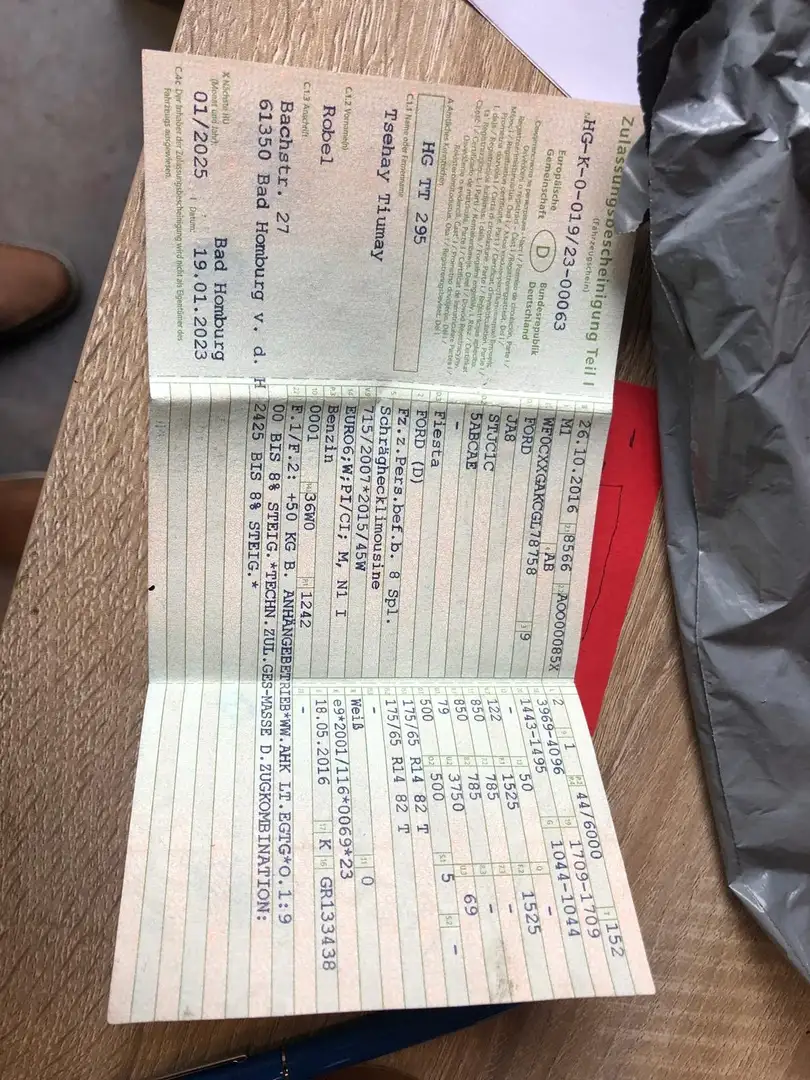 Zulassungsbescheinigung Teil I
(Fahrzeugschein)
HG-K-0-019/23-00063
Europäische
Gemeinschaft
D
Bundesrepublik
Deutschland
HG TT 295
C.1.1 Name oder Firmenname
Tsehay Tiumay
C.1.2 Vorname(n)
Robel
C.1.3 Anschrift
Bachstr. 27
61350 Bad Homburg v. d. H
X Nächste HU
(Monat und Jahr)
01/2025
Datum:
Bad Homburg
19.01.2023
C.4c Der Inhaber der Zulassungsbescheinigung wird nicht als Eigentümer des
Fahrzeugs ausgewiesen.
26.10.2016 8566 A0000085X
M1 AB
WF0CXXGAKCGL78758 9
FORD
JA8
STJC1C
5ABCAE
-
Fiesta
FORD (D)
Fz.z.Pers.bef.b. 8 Spl.
Schrägheck­limousine
715/2007*2015/45W
EURO6;W;PI/CI; M, N1 I
Benzin
0001 36W0 1242
2 1 44/6000 152
3969-4096 1709-1709
1443-1495 1044-1044
- 50 -
122 1525 1525
850 785 -
850 785 -
79 3750 69
500 500 5 -
175/65 R14 82 T
175/65 R14 82 T
-
Weiß 0
e9*2001/116*0069*23
18.05.2016 K GR133438
-
F.1/F.2: +50 KG B. ANHÄNGEBETRIEB*WW.AHK LT.EGTG*O.1:9
00 BIS 8% STEIG.*TECHN.ZUL.GES-MASSE D.ZUGKOMBINATION:
2425 BIS 8% STEIG.*